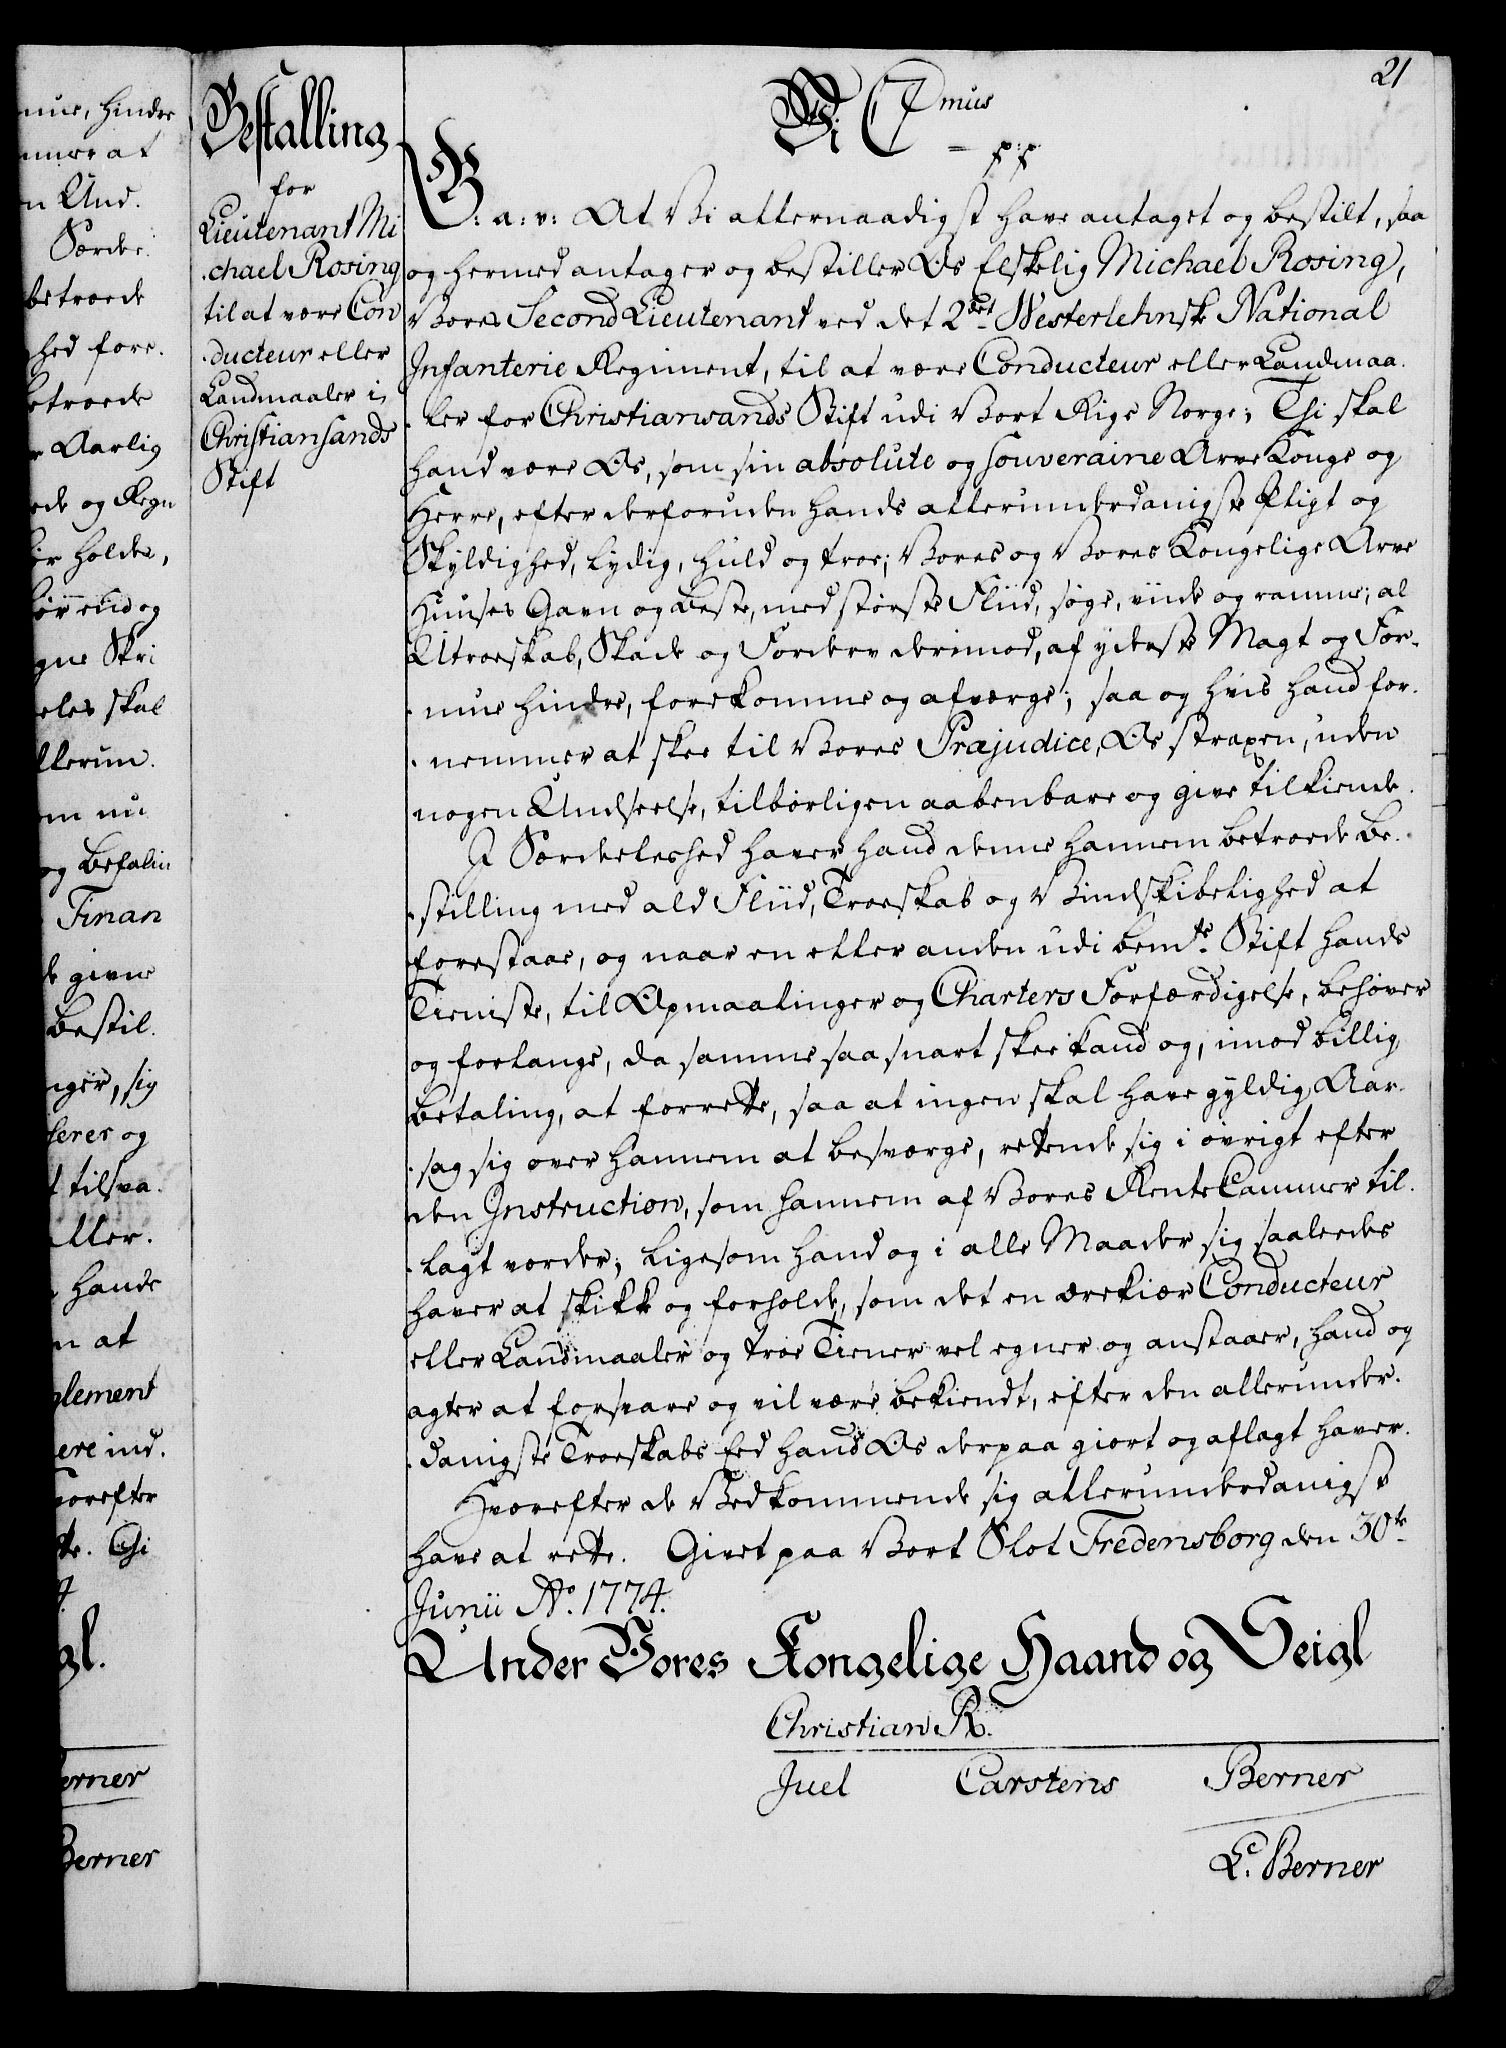 21
nue, hindre
mmerat
n Und.
Særde.
betroede
hed fore.
etroede
r Aarlig
ede og Regn
ir holde,
ör end og
gne Skri
eles skal
llerun.
om nu
og befalin
Finan
de givne
Bestil.
nger, sig
serer og
t tilsva.
eller.
hands
n at
glement
ere ind.
vorefter
tte. Thi
4.
gl.
erner
Berner
Bestalling
for
Lieutenant Mi
.chael Rosing
til at være Con
.ducteur eller
Landmaaler i
Christiansands
Stift
Vi C 7mus
p:p:
G: a: v: At Vi allernaadigst have antaget og bestilt, saa
og hermed antager og bestiller Os Elskelig Michael Rosing,
Vores Second Lieutenant ved det 2det Westerlehnske National
Infanterie Regiment, til at være Conducteur eller Landmaa.
.ler for Christiansands Stift udi Vort Rige Norge; Thi skal
hand være Os, som sin absolute og souveraine Arve Konge og
Herre, efter derforuden hands allerunderdanigste Pligt og
Skyldighed, lydig, huld og troe; Vores og Vores Kongelige Arve
Huuses Gavn og Beste, med største Fliid, søge, viide og ramme; al
Utroeskab, Skade og Forderv derimod, af yderste Magt og For-
.mue hindre, forekomme og afværge; saa og hvis hand for.
.nemmer at skee til Vores Præjudice, Os strapen, uden
nogen Undseelse, tilbørligen aabenbare og give tilkiende.
I Særdeleshed haver hand denne hannem betroede Be.
.stilling med ald Fliid, Troeskab og Vindskibelighed at
forestaae, og naar en eller anden udi bemte Stift hands
Tieniste, til Opmaalinger og Charters Forfærdigelse, behøver
og forlange, da samme saa snart skee kand og, imod billig
betaling, at forrette, saa at ingen skal have gyldig Aar.
.sag sig over hannem at besværge, rettende sig i øvrigt efter
den Instruction, som hannem af Vores RenteCammer til.
.lagt vorder; ligesom hand og i alle Maader sig saaledes
haver at skikke og forholde, som det en ærekiær Conducteur
eller Landmaaler og troe Tiener vel egner og anstaaer, hand og
agter at forsvare og vil være bekiendt, efter den allerunder.
.danigste Troeskabs Eed hand Os derpaa giort og aflagt haver.
Hvorefter de Vedkommende sig allerunderdanigst
have at rette. Givet paa Vort Slot Fredensborg den 30te
Junii Ao. 1774.
Under Vores Kongelige Haand og Seigl
Christian R.
Juel Carstens Berner
Lc. Berner